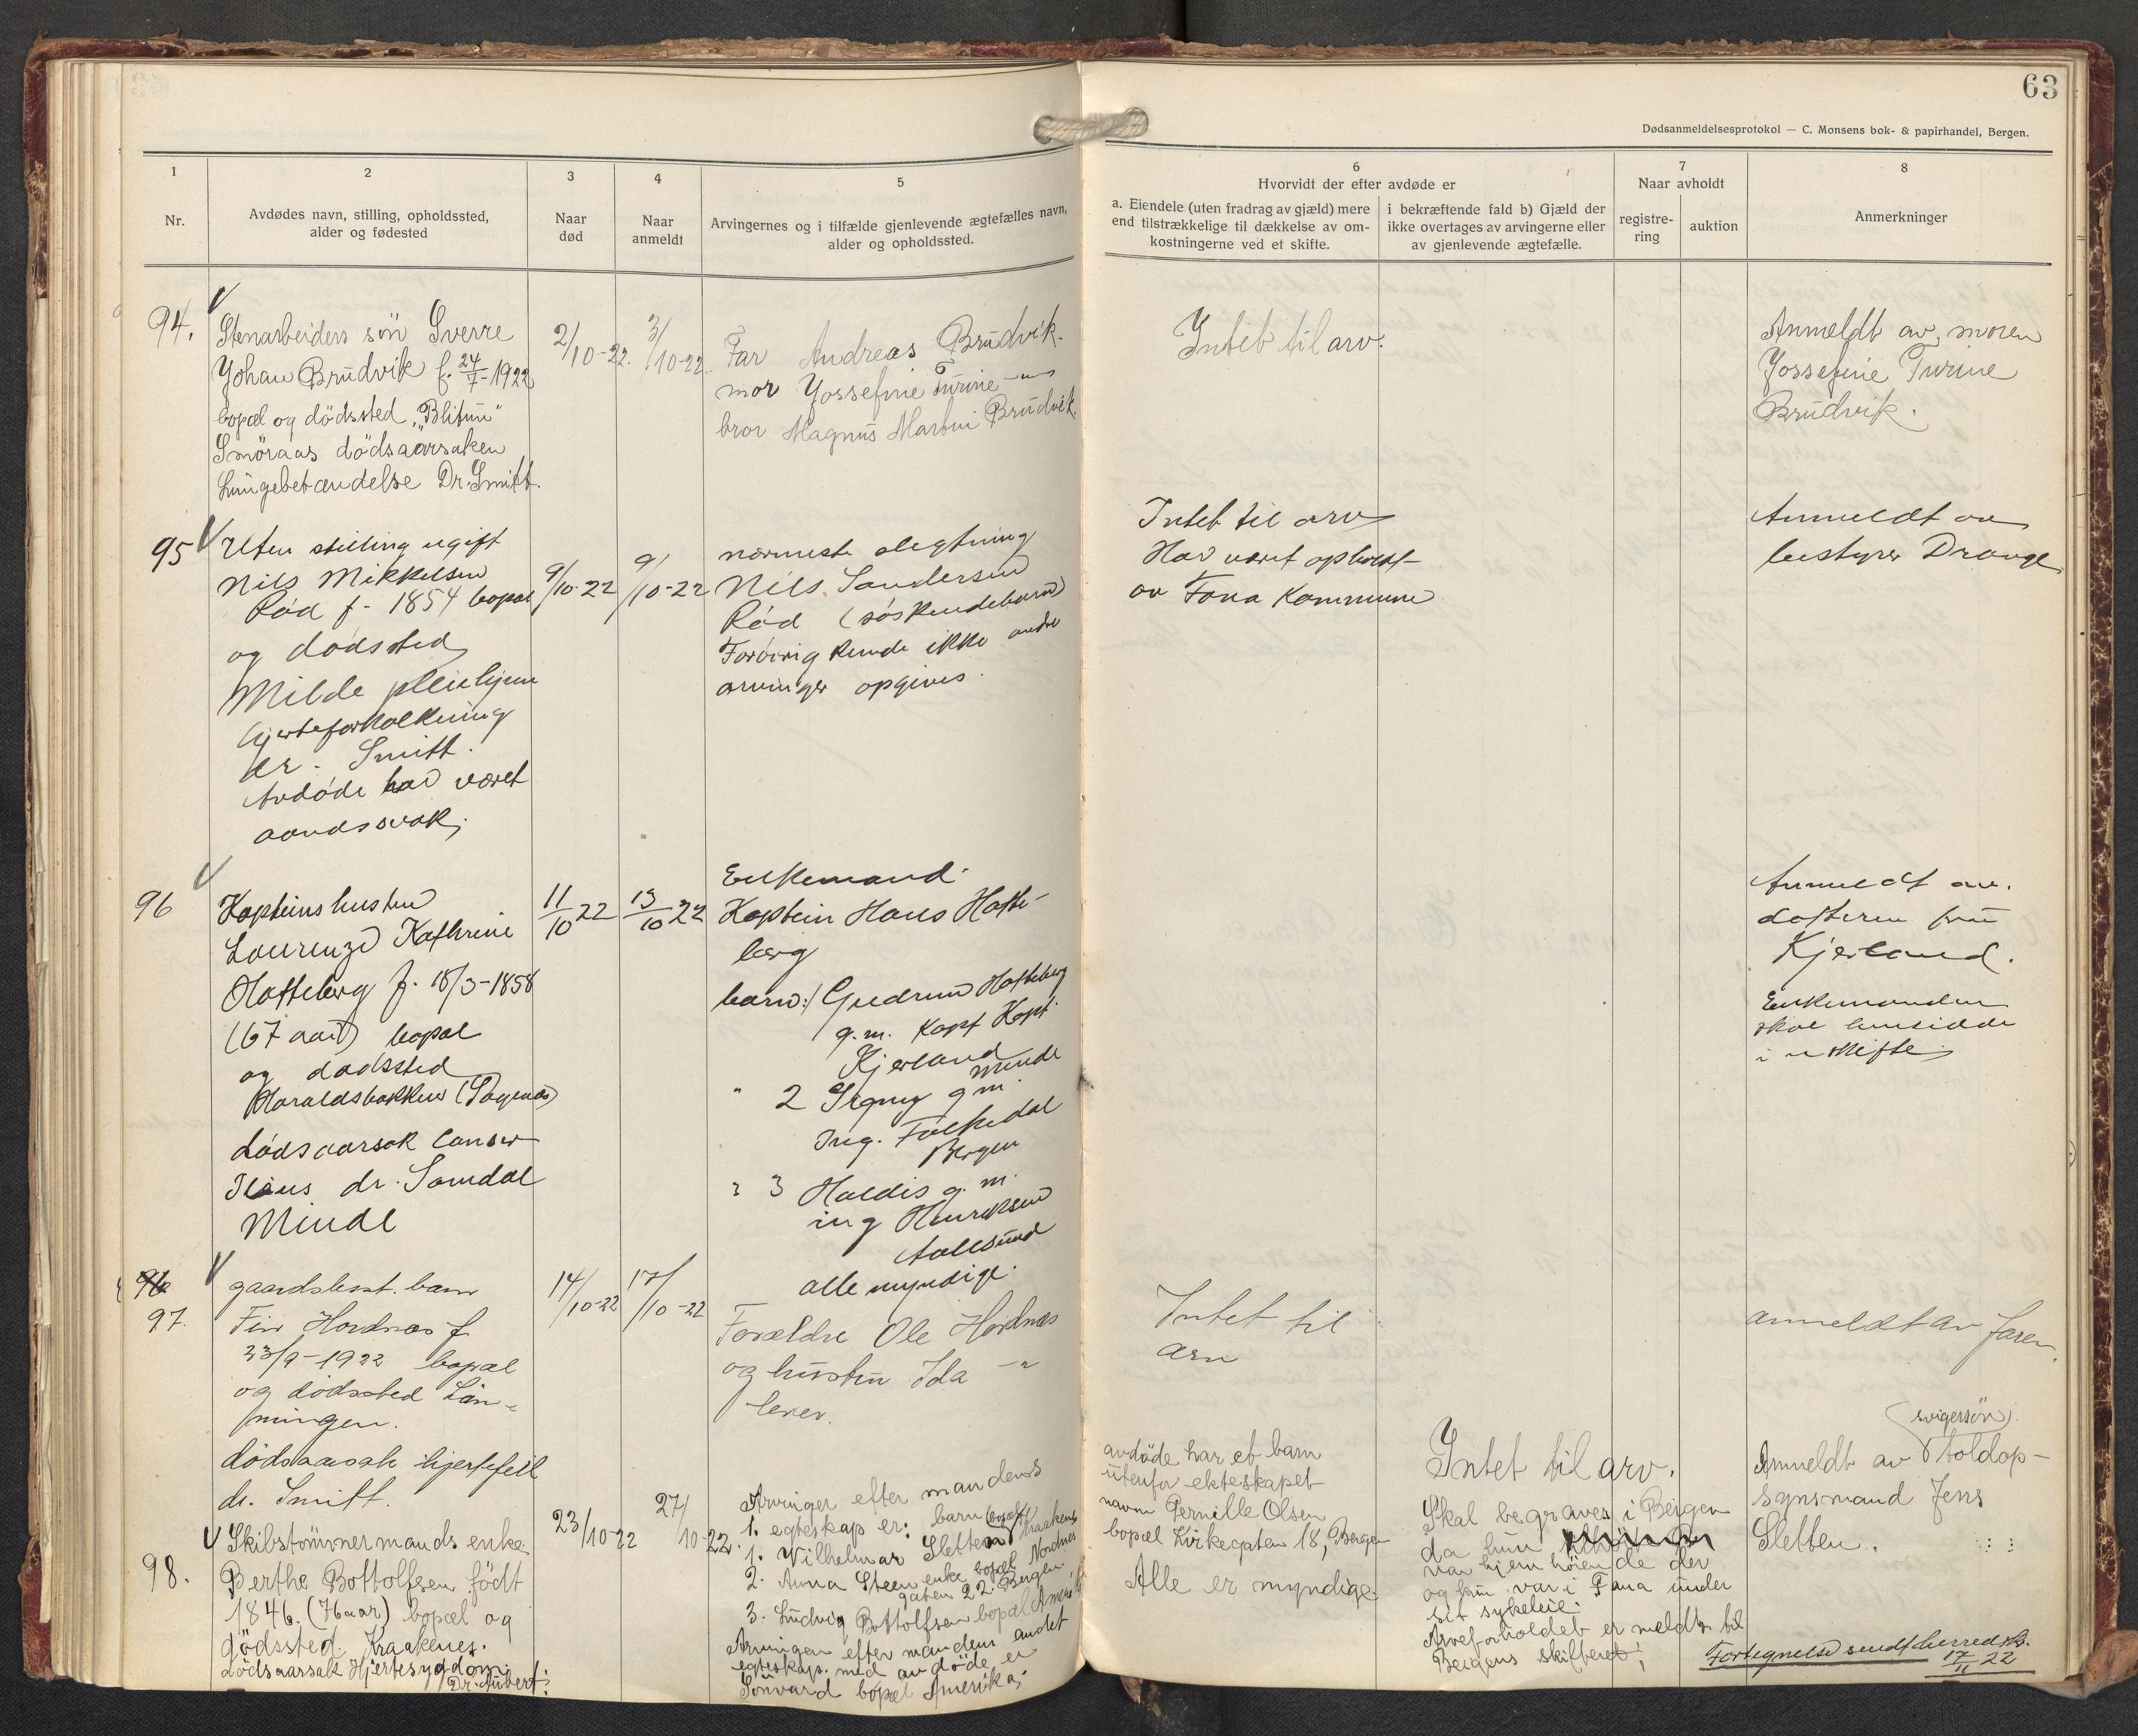 63
Dødsanmeldelsesprotokol — C. Monsens bok- & papirhandel, Bergen.
1
Nr.
2
Avdødes navn, stilling, opholdssted,
alder og fødested
3
Naar
død
4
Naar
anmeldt
5
Arvingernes og i tilfælde gjenlevende ægtefælles navn,
alder og opholdssted.
6
Hvorvidt der efter avdøde er
a. Eiendele (uten fradrag av gjæld) mere
end tilstrækkelige til dækkelse av om-
kostningerne ved et skifte.
i bekræftende fald b) Gjæld der
ikke overtages av arvingerne eller
av gjenlevende ægtefælle.
7
Naar avholdt
registre-
ring
auktion
8
Anmerkninger
94.
Stenarbeiders sön Sverre
Yohan Brudvik f. 24/7-1922
bopæl og dödssted "
Smöraas dödsaarsaken
Lungebetændelse Dr. Smitt.
2/10-22.
3/10-22.
Far Andreas Brudvik.
mor Yossefine Turine -"-
bror Magnus Martin Brudvik.
Intet til arv.
Anmeldt av moren
Yossefine Turine
Brudvik.
95
Uten stilling ugift
Nils Mikkelsen
Rød f. 1854 bopæl
og dødssted
Milde pleiehjem
hjerteforkalkning
dr. Smitt.
Avdøde har været
aandssvak.
9/10-22
9/10-22
nærmeste slegtning
Nils Sandersen
Rød (søskendebarn)
Forøvrig kunde ikke andre
arvinger opgives.
Intet til arv
Har været opholdt
av Fana Kommune
Anmeldt av
bestyrer Drange
96
Kapteins hustru
Kathrine
Hatteberg f. 18/3-1858
(67 aar) bopæl
og dødssted
Haraldsbakken
dødsaarsak cancer
dr. Somdal
Minde
11/10 22
13/10 22
Enkemand.
Kaptein Hans Hatte-
berg
barn: 1 Gudrun Hatteberg
g.m. Kapt
Kjerland
Minde
" 2 Signy g.m.
Ing. Folkedal
Bergen
" 3 Haldis g.m.
ing Henriksen
Aalesund
alle myndige.
Anmeldt av.
datteren fru
Kjerland.
Enkemanden
skal hensidde
i uskifte
96
97.
gaardsbest. barn
Finn Hordnæs f
23/9-1922 bopæl
og dødssted Lön-
ningen.
dödsaarsak hjertefeil
dr. Smitt.
14/10-22
17/10-22
Forældre Ole Hordnæs
og hustru Ida -"-
lever.
Intet til
arv
anmeldt av faren.
98.
Skibstömmermands enke
Berthe Bottolfsen födt
1846. (76 aar) bopæl og
dödssted. Kraakenes.
dödsaarsak Hjertesygdom.
Dr. Aubert.
23/10-22
27/10-22.
Arvinger efter mandens
1. egteskap er: barn
1. Wilhelmar Sletten bopæl Kraakenes
2. Anna Steen enke bopæl Nordnæs
gaten 22. Bergen.
3. Ludvig Bottolfsen bopæl Amerika
Arvingen efter mandens andet
egteskap. med avdöde er
bopæl Amerika.
avdöde har et barn
utenfor ekteskapet
navn Pernille Olsen
bopæl Kirkegaten 18, Bergen
Alle er myndige.
Intet til arv.
Skal begraves i Bergen
da hun
var hjemhörende der
og kun var i Fana under
sit sykeleie.
Arveforholdet er meldt til
Bergens skifteret.
(svigersön)
Anmeldt av toldop-
synsmand Jens
Sletten.
Fortegnelse sendt herredsk.
17/11 22